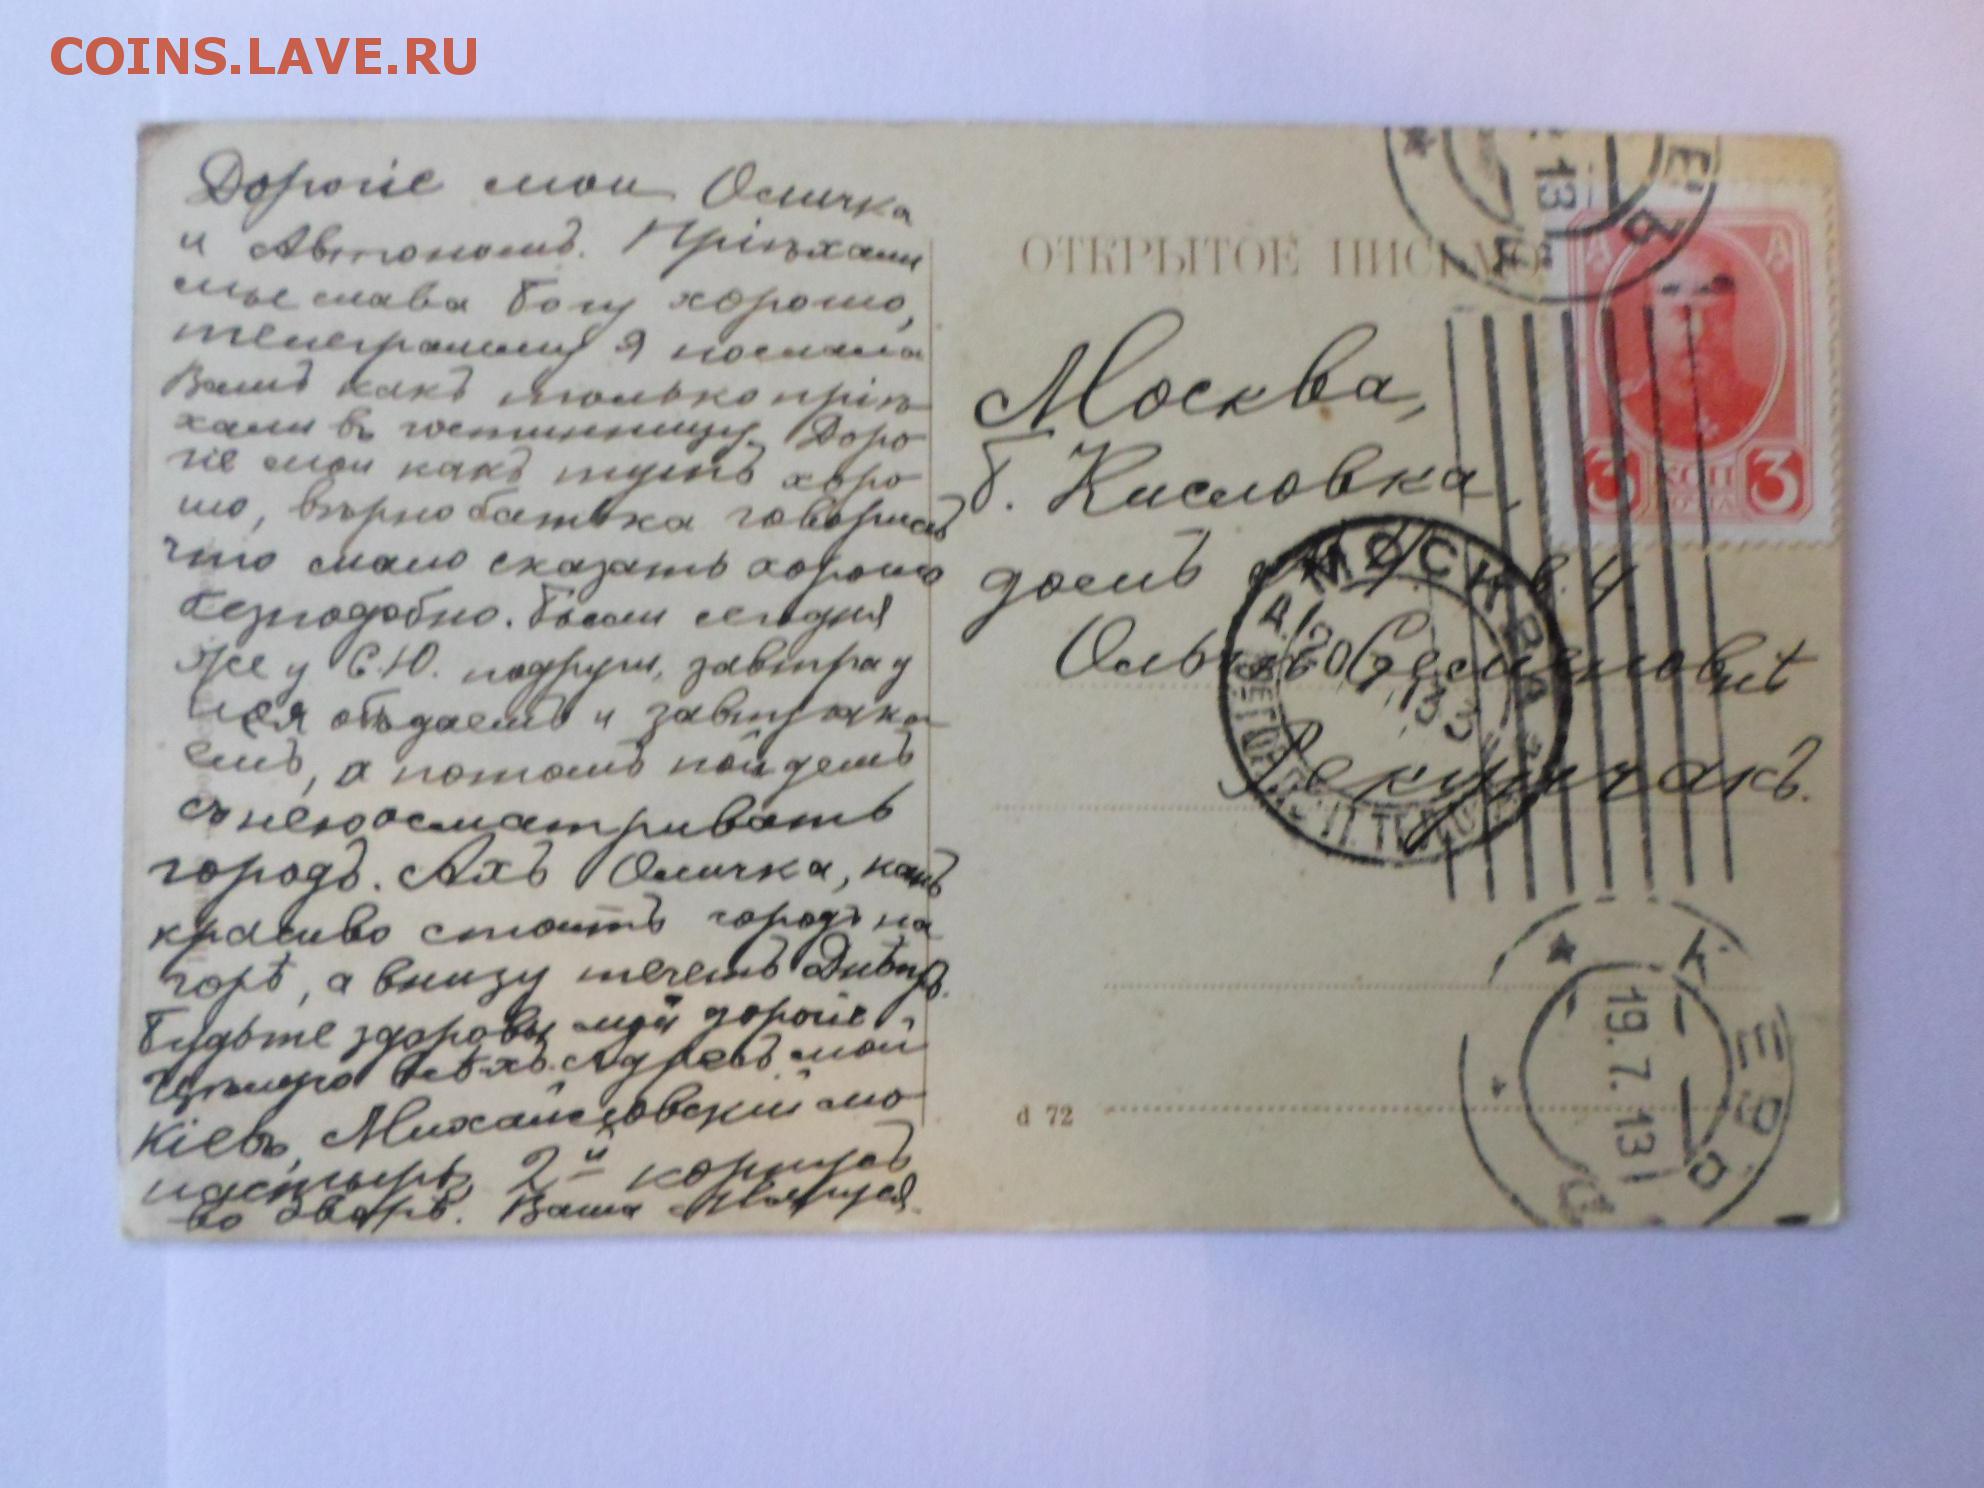 COINS.LAVE.RU
Дорогіе мои Оличка
и Автономъ. Пріѣхали
мы слава Богу хорошо,
телеграмму я послала
Вамъ какъ только пріѣ-
хали въ гостинницу. Доро
гіе мои какъ тутъ хоро
шо, вѣрно батька говорилъ
что мало сказать хорошо
безподобно. Были сегодня
уже у С.Ю. подруги, завтра у
нея обѣдаемъ и завтрака
емъ, а потомъ пойдемъ
съ нею осматривать
городъ. Ахъ Оличка, какъ
красиво стоитъ городъ на
горѣ, а внизу течетъ Днѣпръ.
Будьте здоровы мои дорогіе
Цѣлую всѣхъ. Адресъ мой
Кіевъ, Михайловскій мо
настырь, 2й корпусъ
во дворѣ. Ваша
ОТКРЫТОЕ ПИСЬМО
Москва,
Б. Кисловка,
домъ кв. 4
Ольгѣ Семеновнѣ
d 72
3 КОП 3
МОСКВА
20 7 13
КІЕВЪ
19.7.13
13